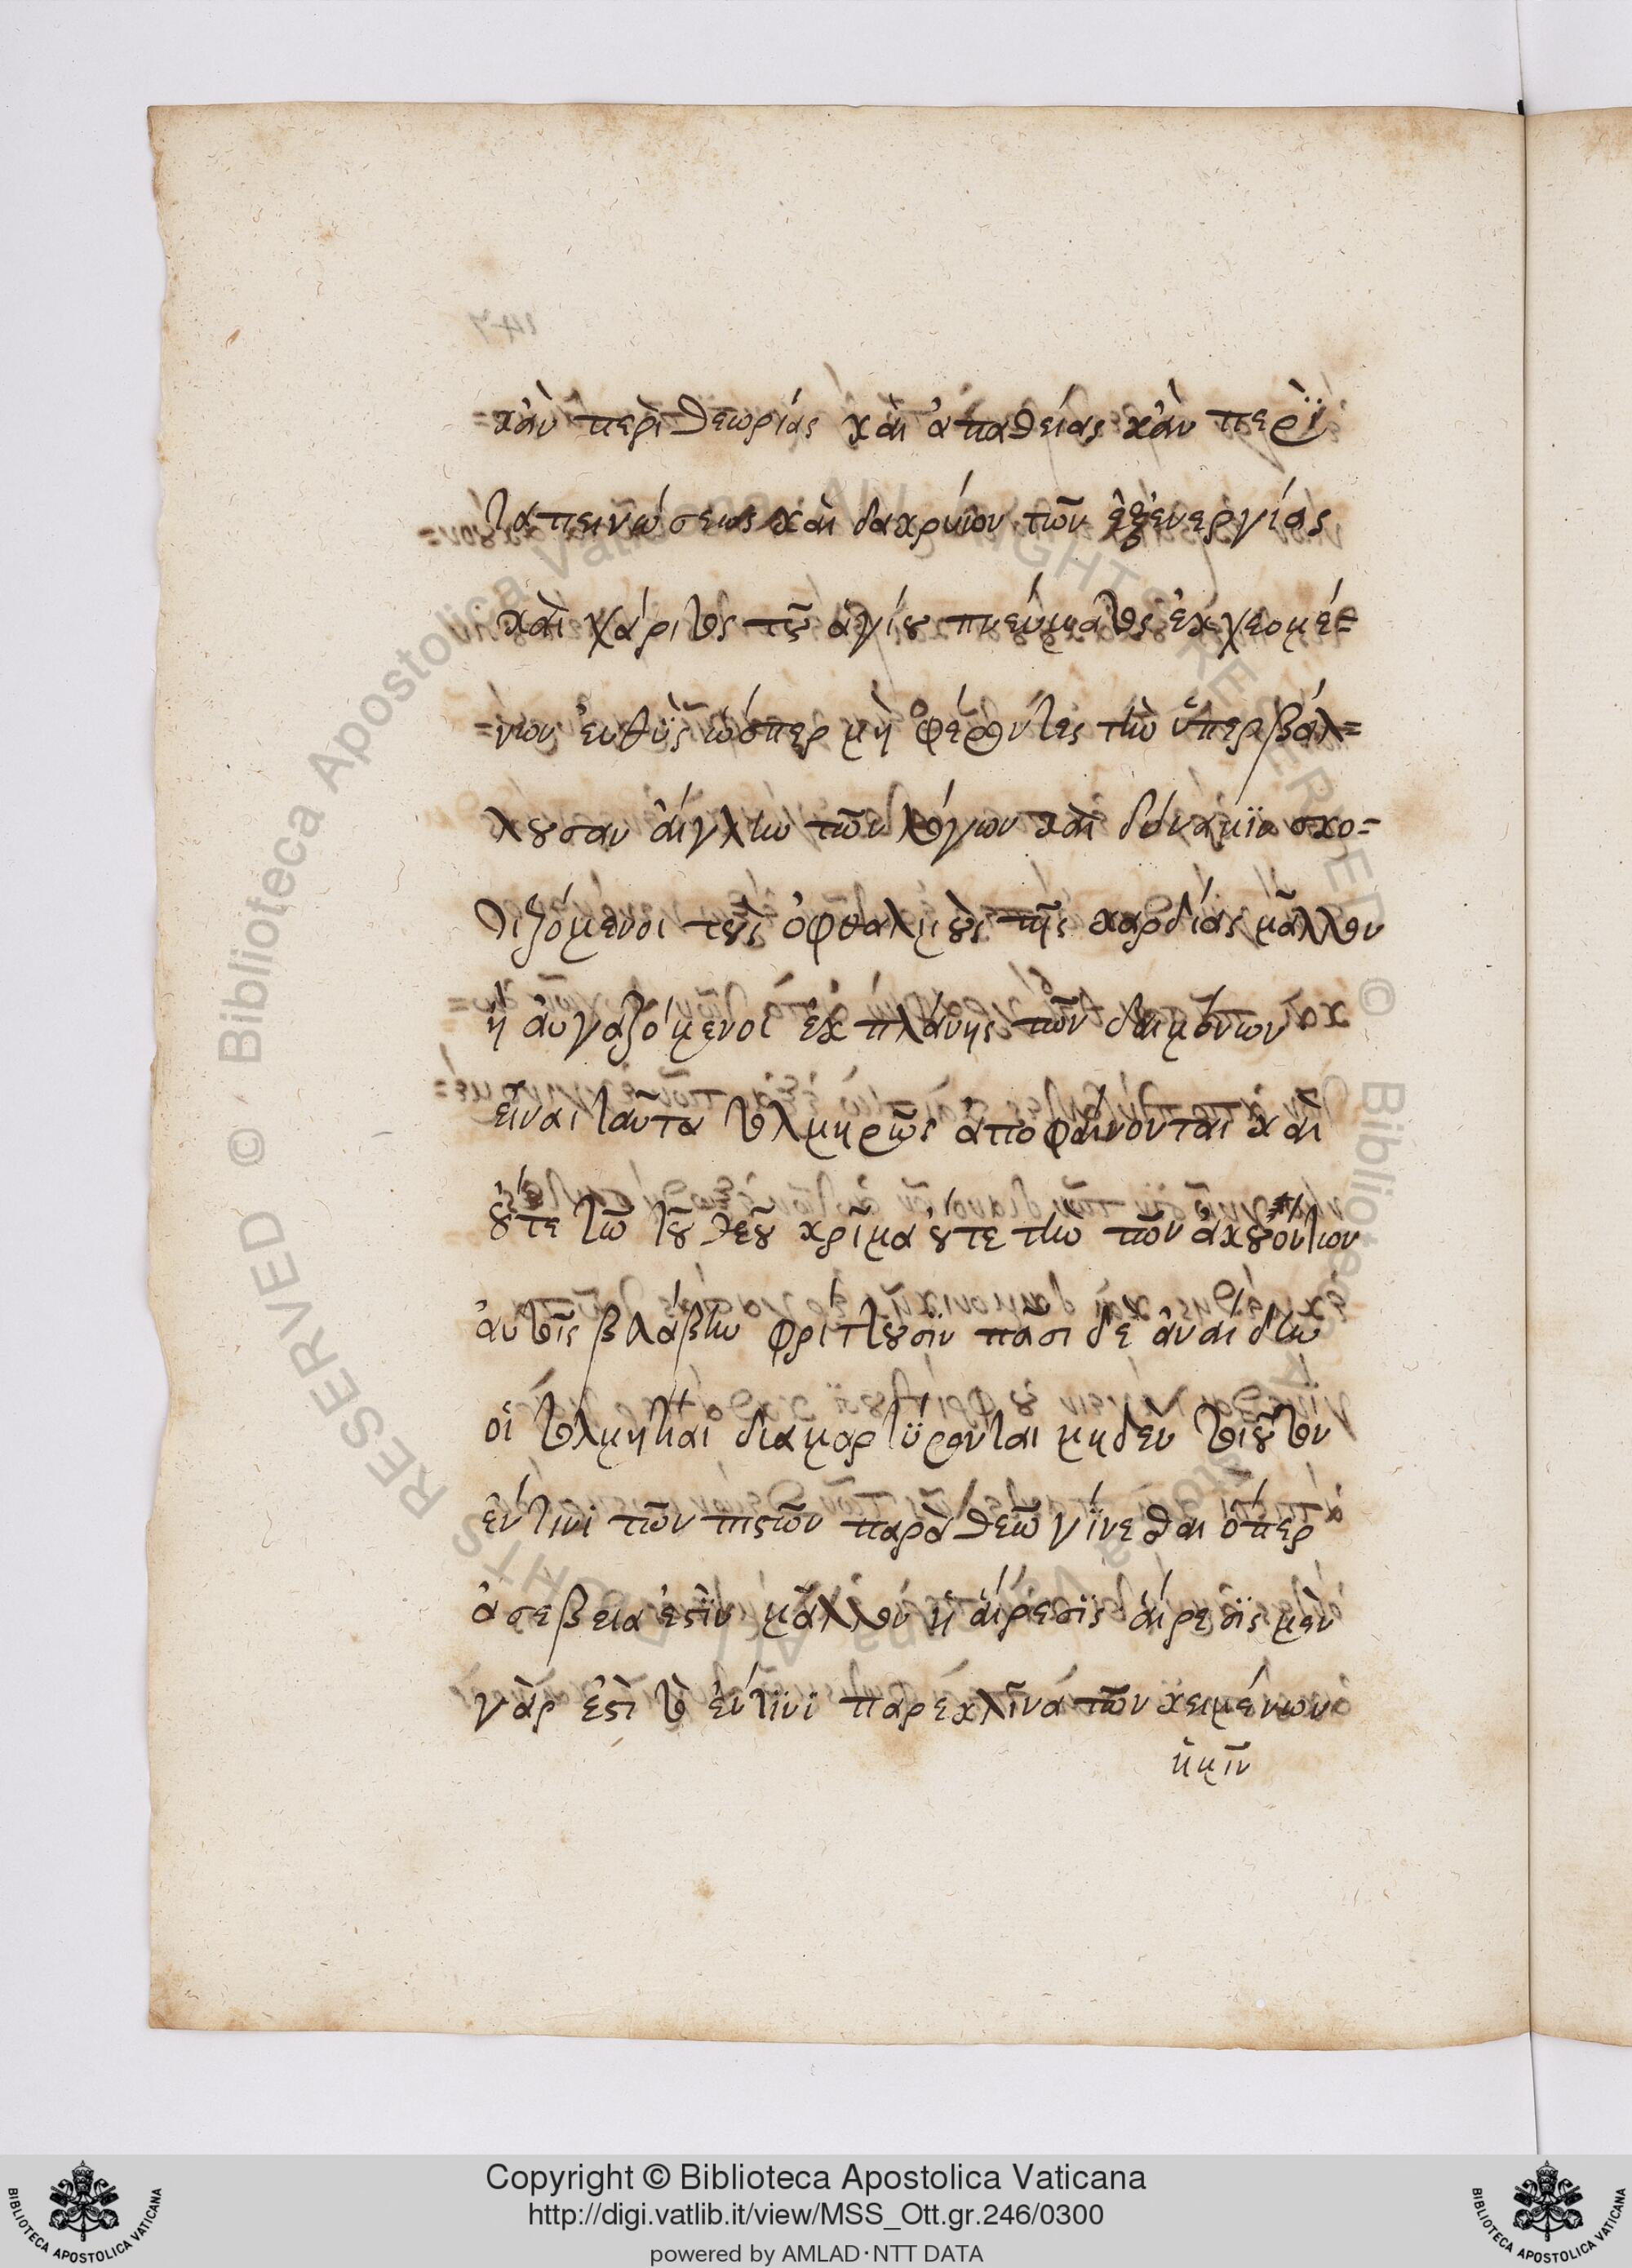 κἀν περὶ θεωρίας καὶ ἀπαθείας κἀν περὶ
ταπεινώσεως καὶ δακρύων τῶν ἐξενεργίας
καὶ χάριτος τοῦ ἁγίου πνεύματος ἐκχεομέ=
=νων εὐθὺς ὥσπερ μὴ φέροντες τὴν ὑπερβάλ=
λουσαν αἴγλην τῶν λόγων καὶ δύναμϊν σκο=
τιζόμενοι τοὺς ὀφθαλμοὺς τῆς καρδίας μᾶλλον
ἢ αὐγαζόμενοι ἐκ πλάνης τῶν δαιμόνων
εἶναι ταῦτα τολμηρῶς ἀποφαίνονται καὶ
οὔτε τῶ τοῦ θεοῦ κρῖμα οὔτε τὴν τῶν ἀκουόντων
αὐτοῖς βλάβην φρίττουσϊν πᾶσι δὲ ἀναίδην
οἱ τολμηταὶ διαμαρτϋρονται μηδὲν τοιοῦτον
ἔν τινι τῶν πιστῶν παρὰ θεῶ γίνεσθαι ὅπερ
ἀσέβεια ἐστϊν μᾶλλον ἢ αἵρεσϊς αἵρεσϊς μὲν
γὰρ ἐστὶ τὸ ἔν τϊνϊ παρεκλῖνα τῶν κειμένων
ἡμῖν
Copyright © Biblioteca Apostolica Vaticana
http://digi.vatlib.it/view/MSS_Ott.gr.246/0300
powered by AMLAD·NTT DATA
BIBLIOTECA APOSTOLICA VATICANA
BIBLIOTECA APOSTOLICA VATICANA